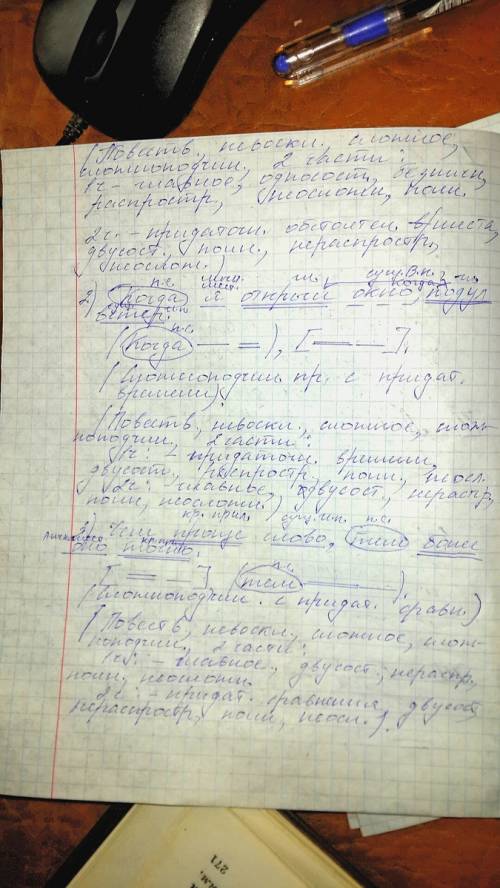 (Повеств., невоскл., сложное,
сложноподчин., 2 части:
1ч. - главное, односост., безличн.,
распростр., неосложн., полн.
2ч. - придаточн. обстоятел. места,
двусост., полн., нераспростр.,
неослож.)
п.с. мест. гл. сущ. В.п. когда? гл.
2) Когда я открыл окно, подул
ветер.
п.с.
(Когда — =), [= —].
(Сложноподчин. пр. с придат.
времени)
(Повеств., невоскл., сложное, слож-
ноподчин., 2 части:
1ч. - придаточн. времени,
двусост., распростр., полн., неосл.
2ч. - главные, двусост., нераспр.,
полн., неосложн.)
кр. прил. сущ. и.п. п.с.
3) Чем проще слово, тем более
оно точно.
п.с.
[= —] (тем —)
(Сложноподчин. с придат. сравн.)
(Повеств., невоскл., сложное, слож-
ноподчин., 2 части:
1ч. - главное, двусост., нераспр.,
полн., неосложн.
2ч. - придат. сравнения, двусост.,
нераспростр., полн., неосл.).
271